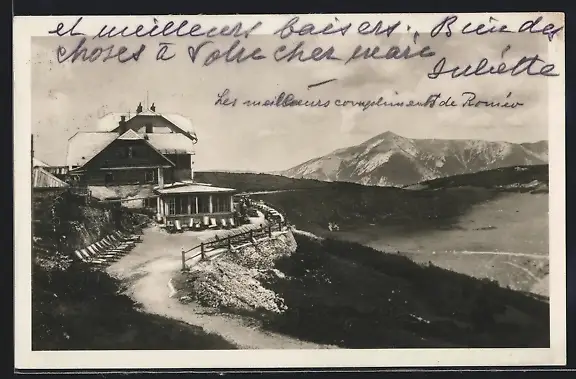 et meilleurs baisers. Bien des
choses à votre cher mari
Juliette
Les meilleurs compliments de Roméo